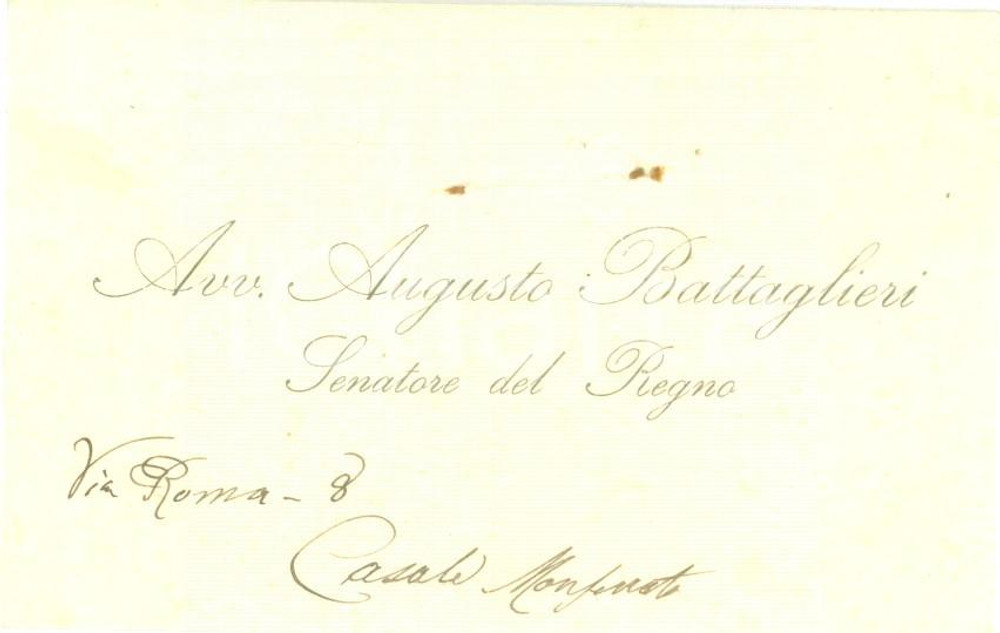 Avv. Augusto Battaglieri
Senatore del Regno
Via Roma - 8
Casale Monferrato